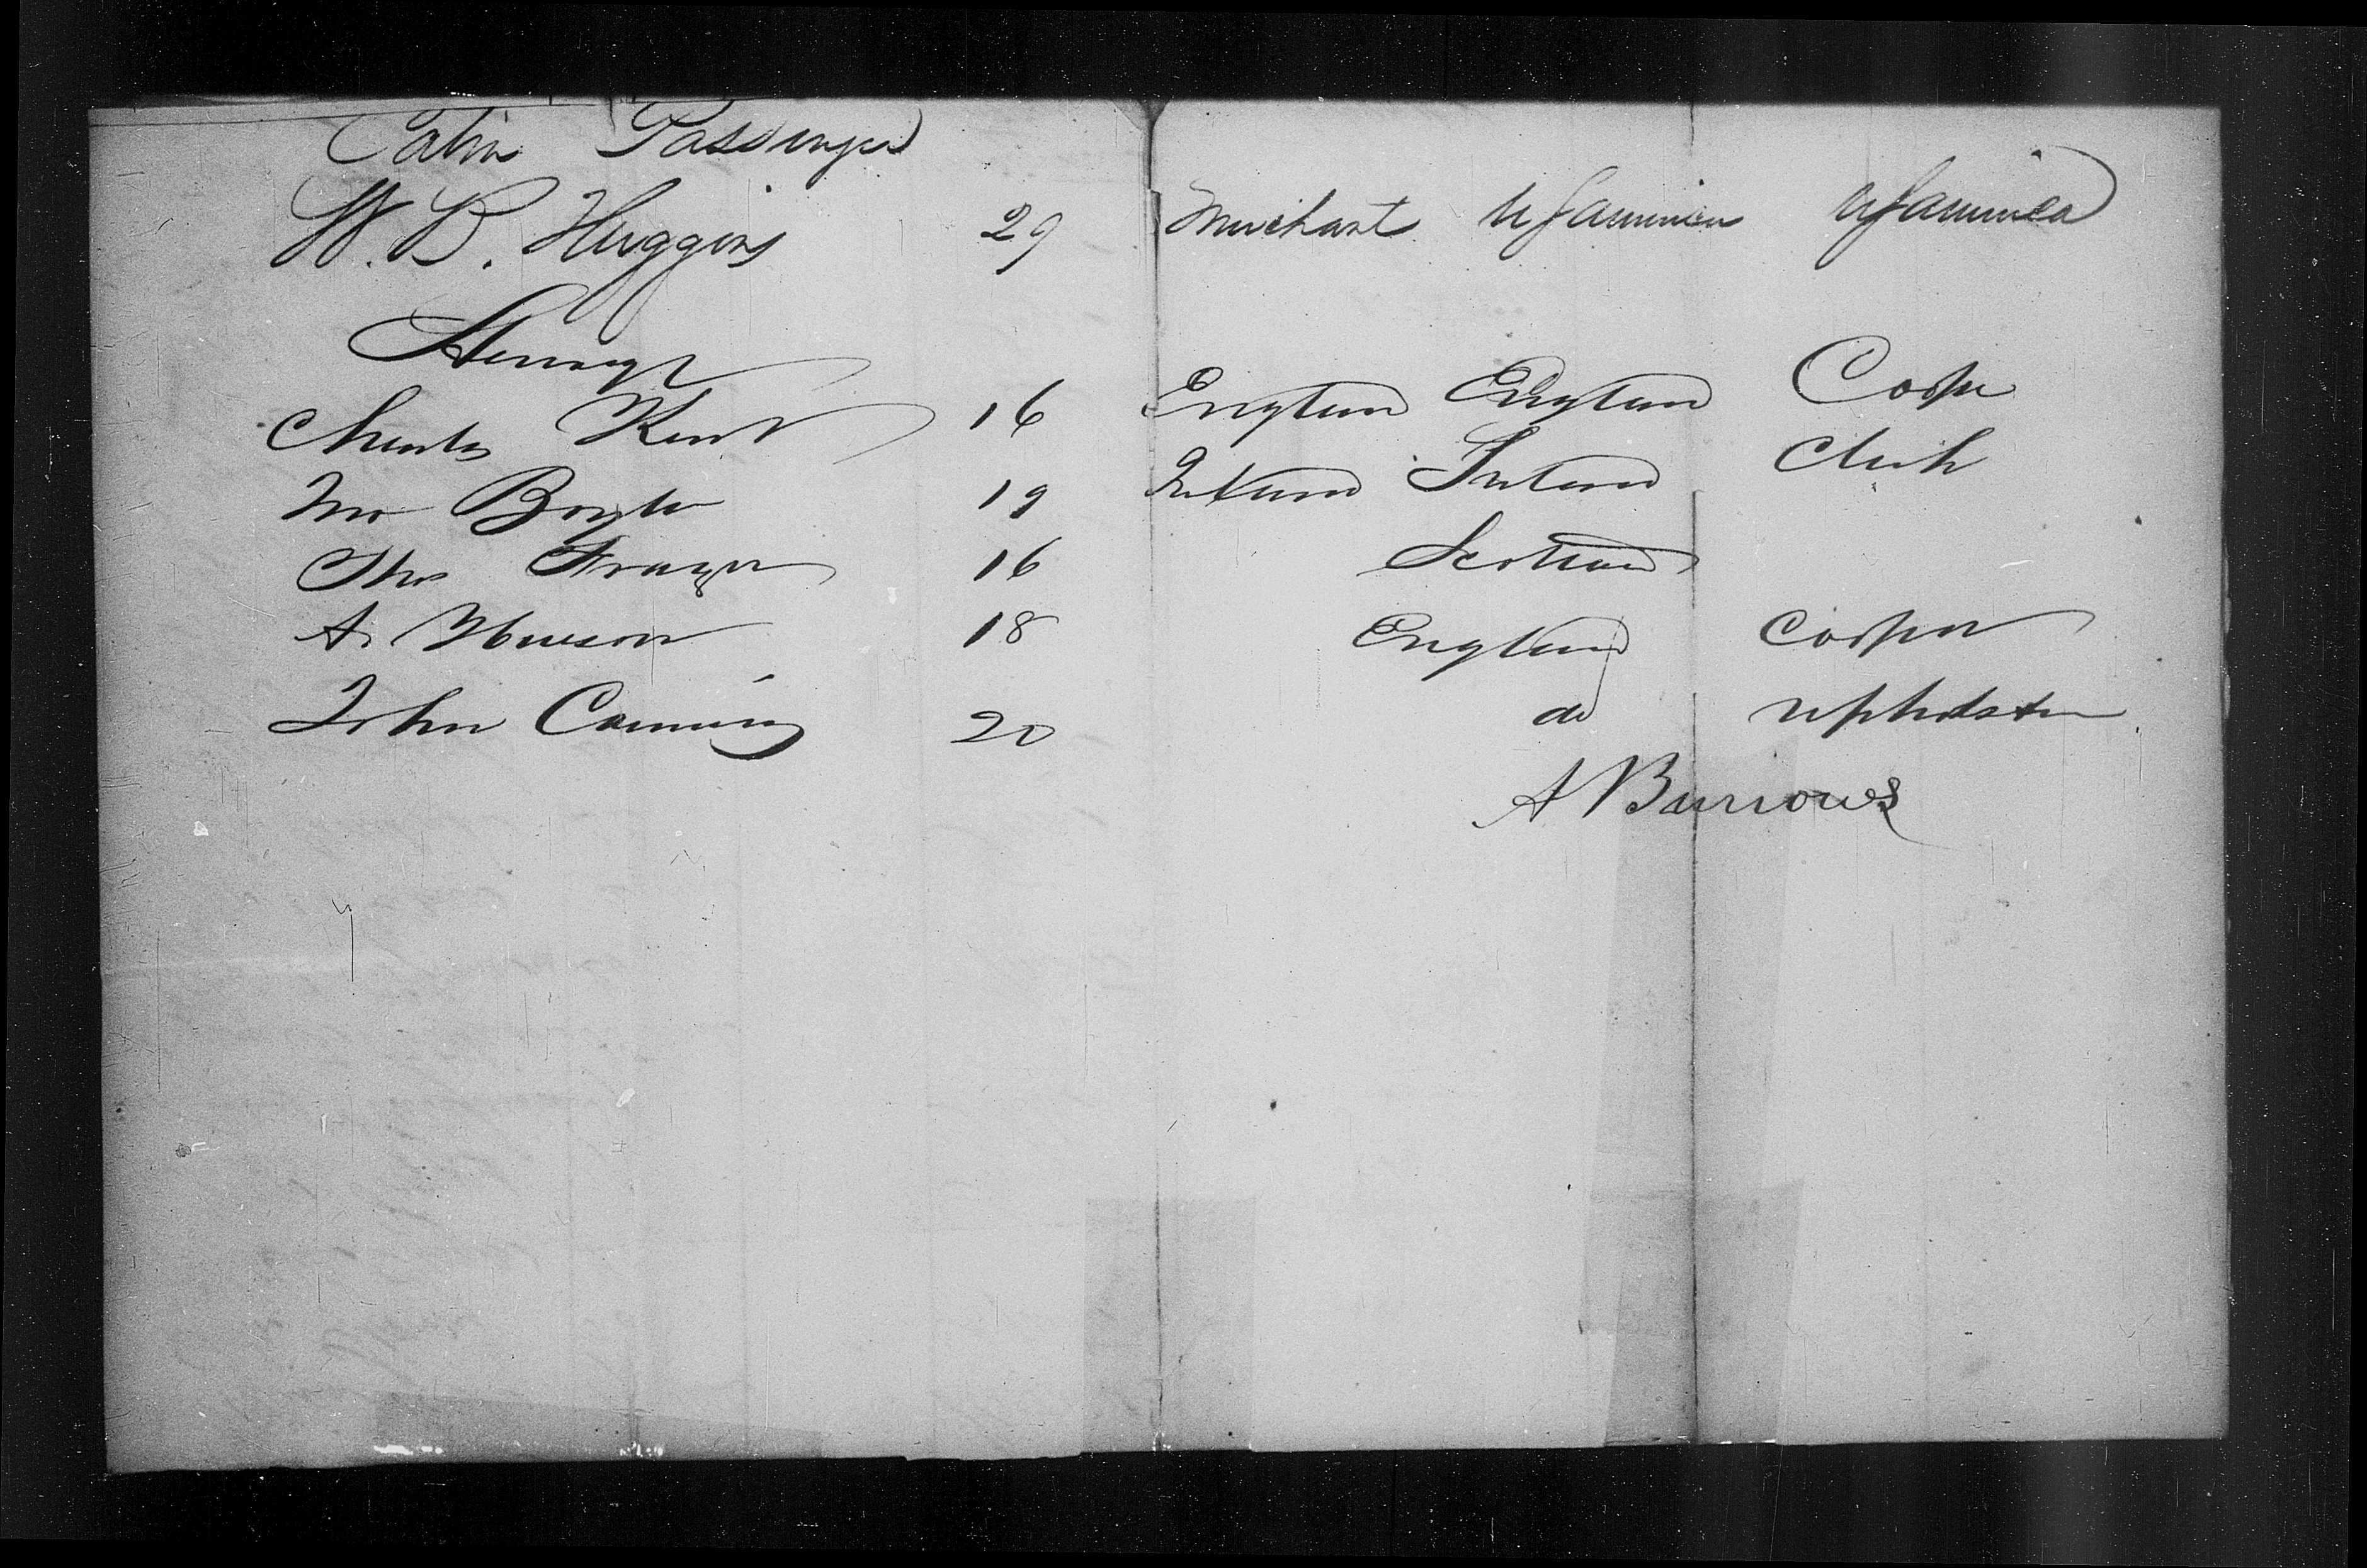 Cabin Passenger
W. B. Huggins 29 Merchant
Steerage
Charles Kent 16 England England Cooper
Boyle 19 Ireland Ireland Clerk
Thos Frazer 16 Scotland
A. 18 England Cooper
John Canning 20 do upholster
A Burrows